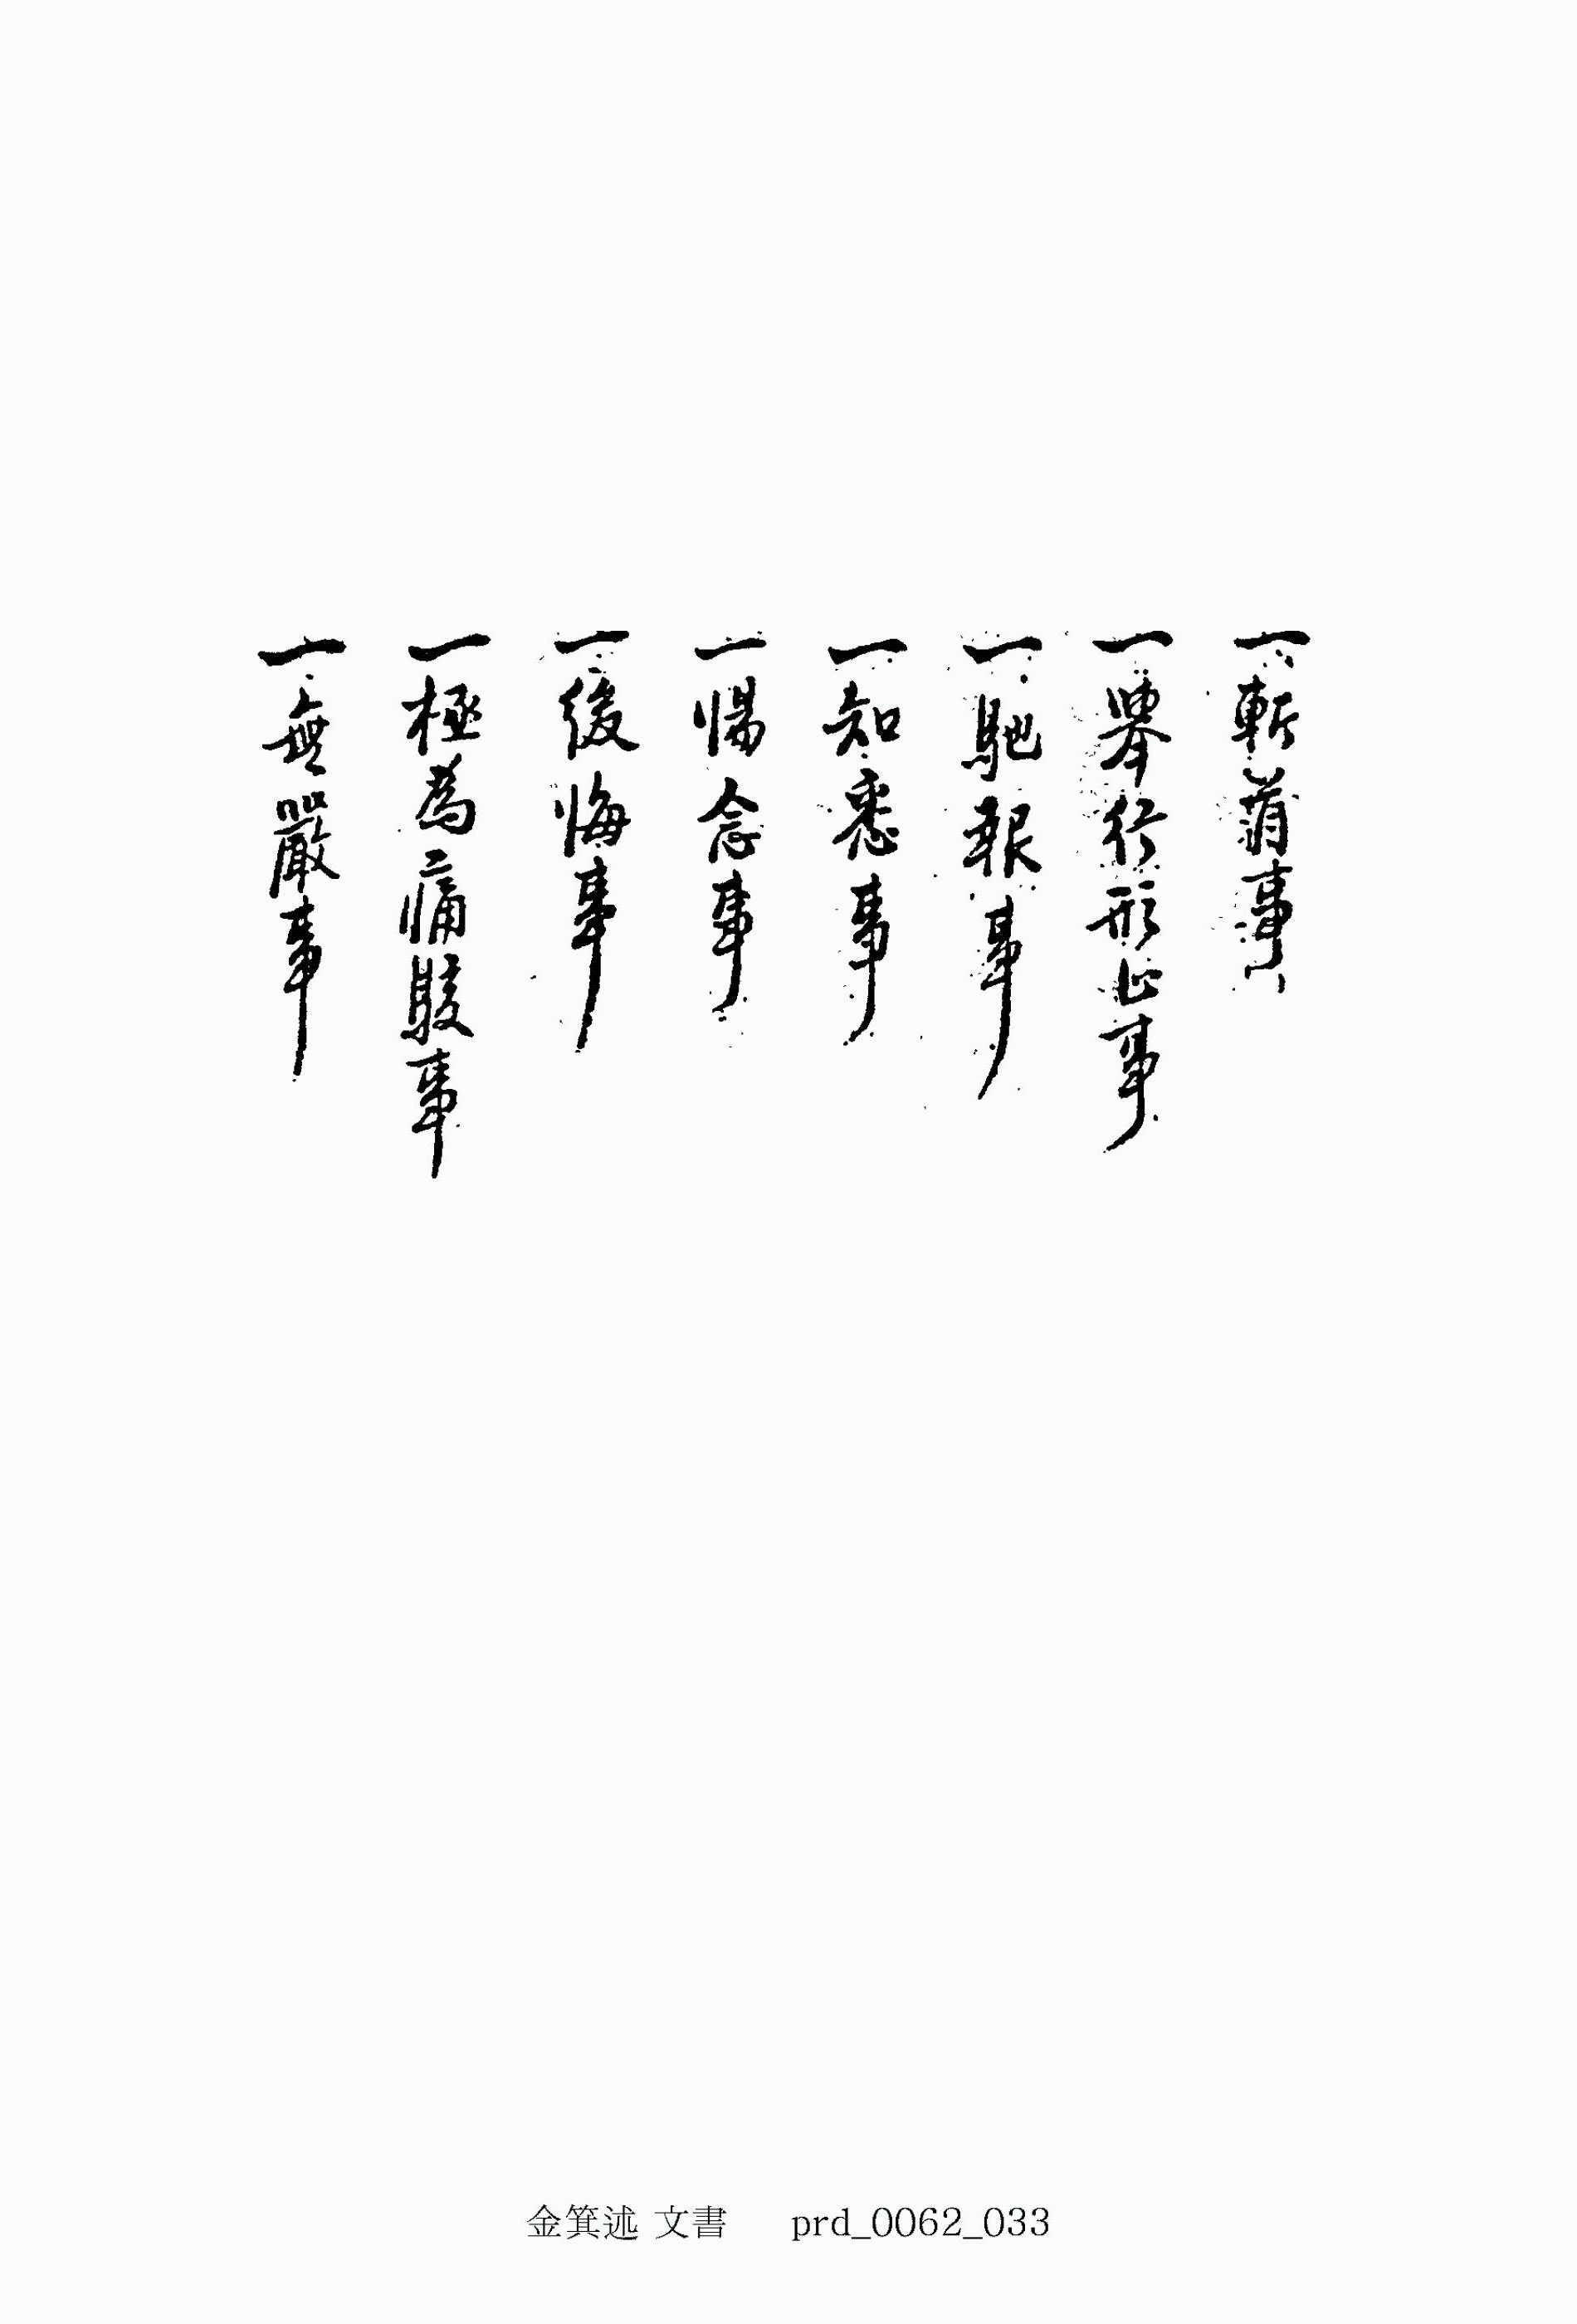 一 斬 事
一 擧行形止事
一 馳報事
一 知悉事
一 惕念事
一 後悔事
一 極爲痛駭事
一 無嚴事
金箕述 文書 prd_0062_033